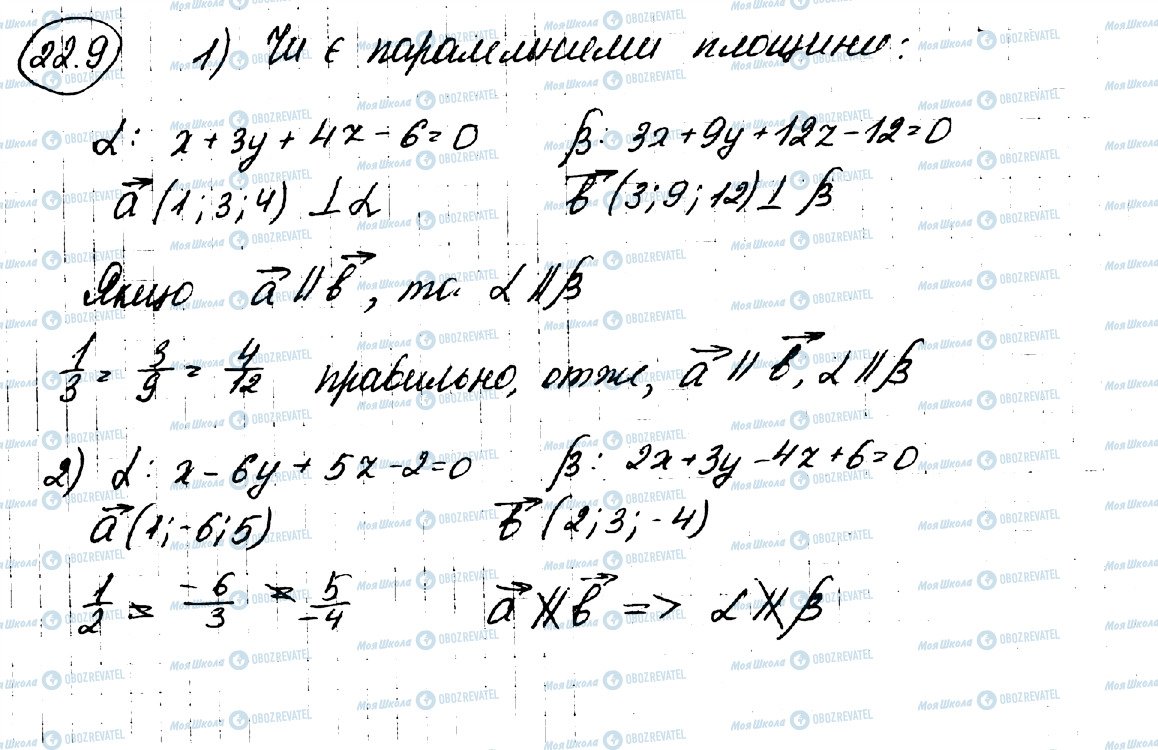 22.9 1) Чи є паралельними площини:
α: x+3y+4z-6=0 β: 3x+9y+12z-12=0
a⃗ (1;3;4) ⊥ α b⃗ (3;9;12) ⊥ β
Якщо a⃗ || b⃗, то α || β
1/3 = 3/9 = 4/12 правильно, отже, a⃗ || b⃗, α || β
2) α: x-6y+5z-2=0 β: 2x+3y-4z+6=0
a⃗ (1;-6;5) b⃗ (2;3;-4)
1/2 ≠ -6/3 ≠ 5/-4 a⃗ ∦ b⃗ => α ∦ β
МояШкола OBOZREVATEL